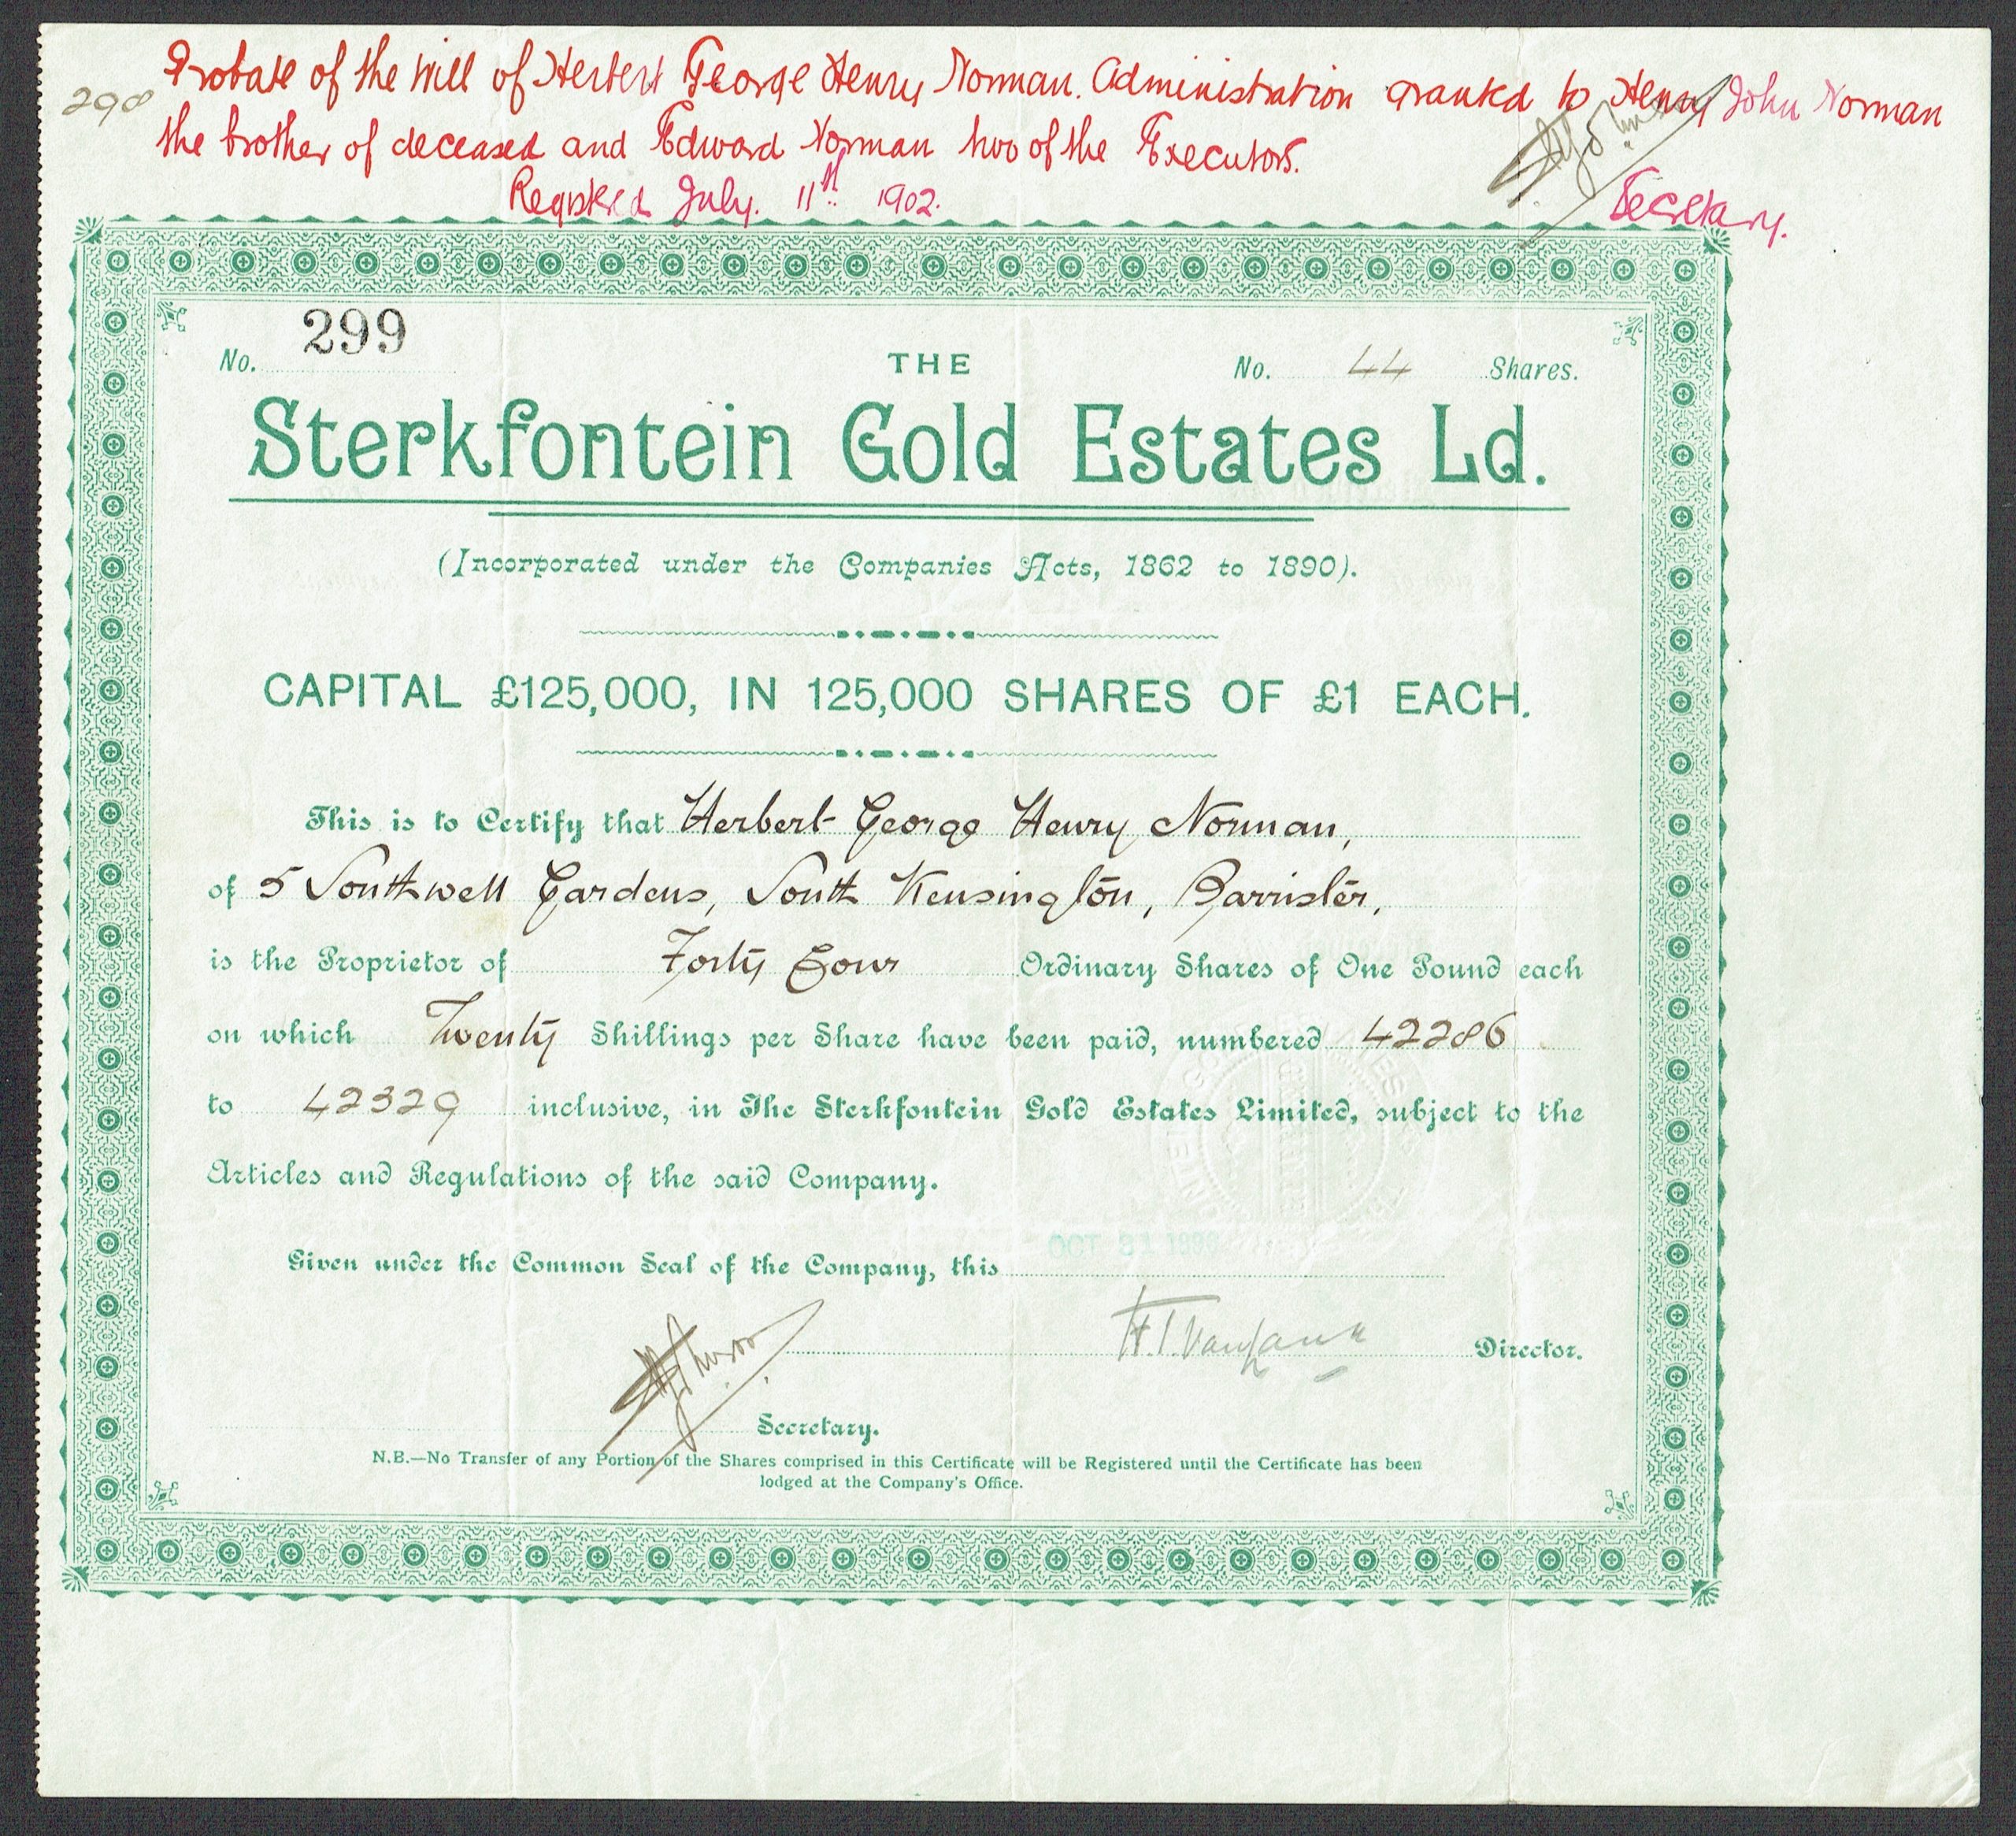 298
Probate of the Will of Herbert George Henry Norman. Administration granted to Henry John Norman
the brother of deceased and Edward Norman two of the Executors.
Registered July. 11th 1902.
Secretary.
No. 299
THE
No. 44 Shares.
Sterkfontein Gold Estates Ld.
(Incorporated under the Companies Acts, 1862 to 1890).
CAPITAL £125,000, IN 125,000 SHARES OF £1 EACH.
This is to Certify that Herbert George Henry Norman,
of 5 Southwell Gardens, South Kensington, Barrister,
is the Proprietor of Forty Four Ordinary Shares of One Pound each
on which Twenty Shillings per Share have been paid, numbered 42286
to 42329 inclusive, in The Sterkfontein Gold Estates Limited, subject to the
Articles and Regulations of the said Company.
Given under the Common Seal of the Company, this OCT 31
Director.
Secretary.
N.B.—No Transfer of any Portion of the Shares comprised in this Certificate will be Registered until the Certificate has been
lodged at the Company's Office.